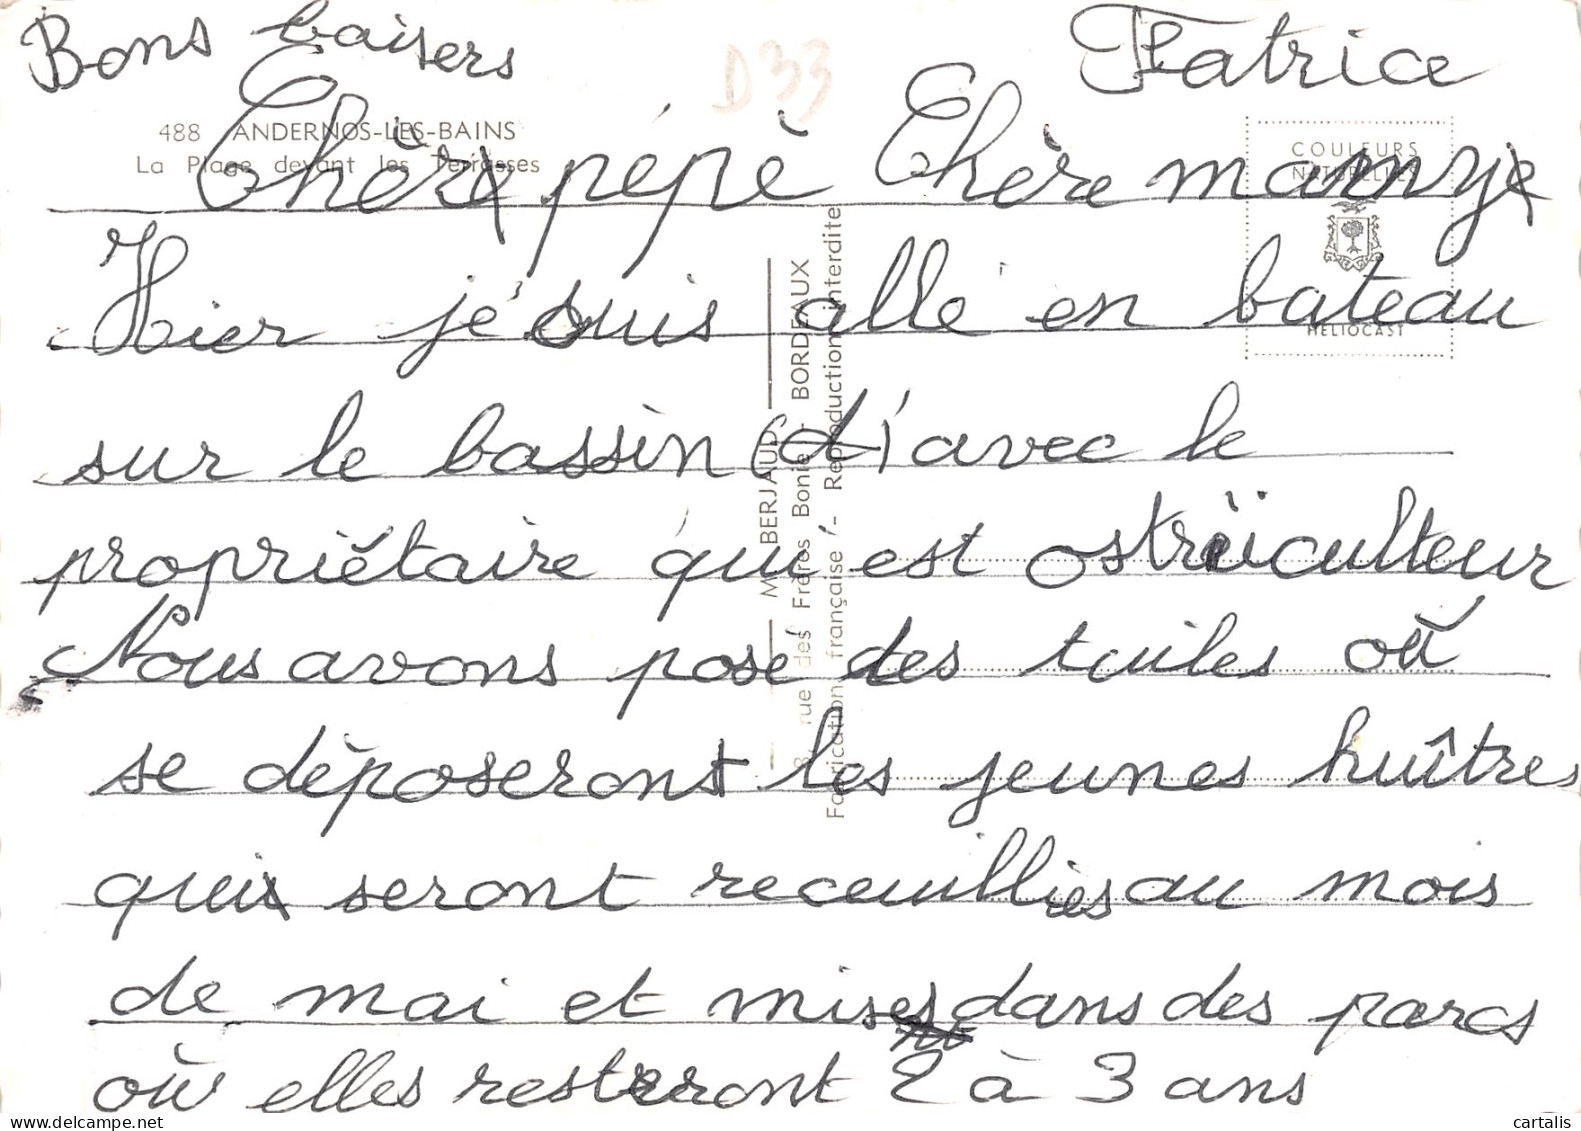 Bons baisers
Patrice
D33
488 ANDERNOS-LES-BAINS
La Plage devant les Terrasses
COULEURS
NATURELLES
HELIOCAST
Chèr pépè Chère mamy
Hier je suis allé en bateau
sur le bassin (d') avec le
propriétaire qui est ostréiculteur
Nous avons posé des tuiles où
se dèposeront les jeunes huîtres
qui seront receuillies au mois
de mai et mises dans des parcs
où elles resteront 2 à 3 ans
M. BERJAUD
8, rue des Frères Bonie - BORDEAUX
Fabrication française - Reproduction interdite
delcampe.net
cartalis